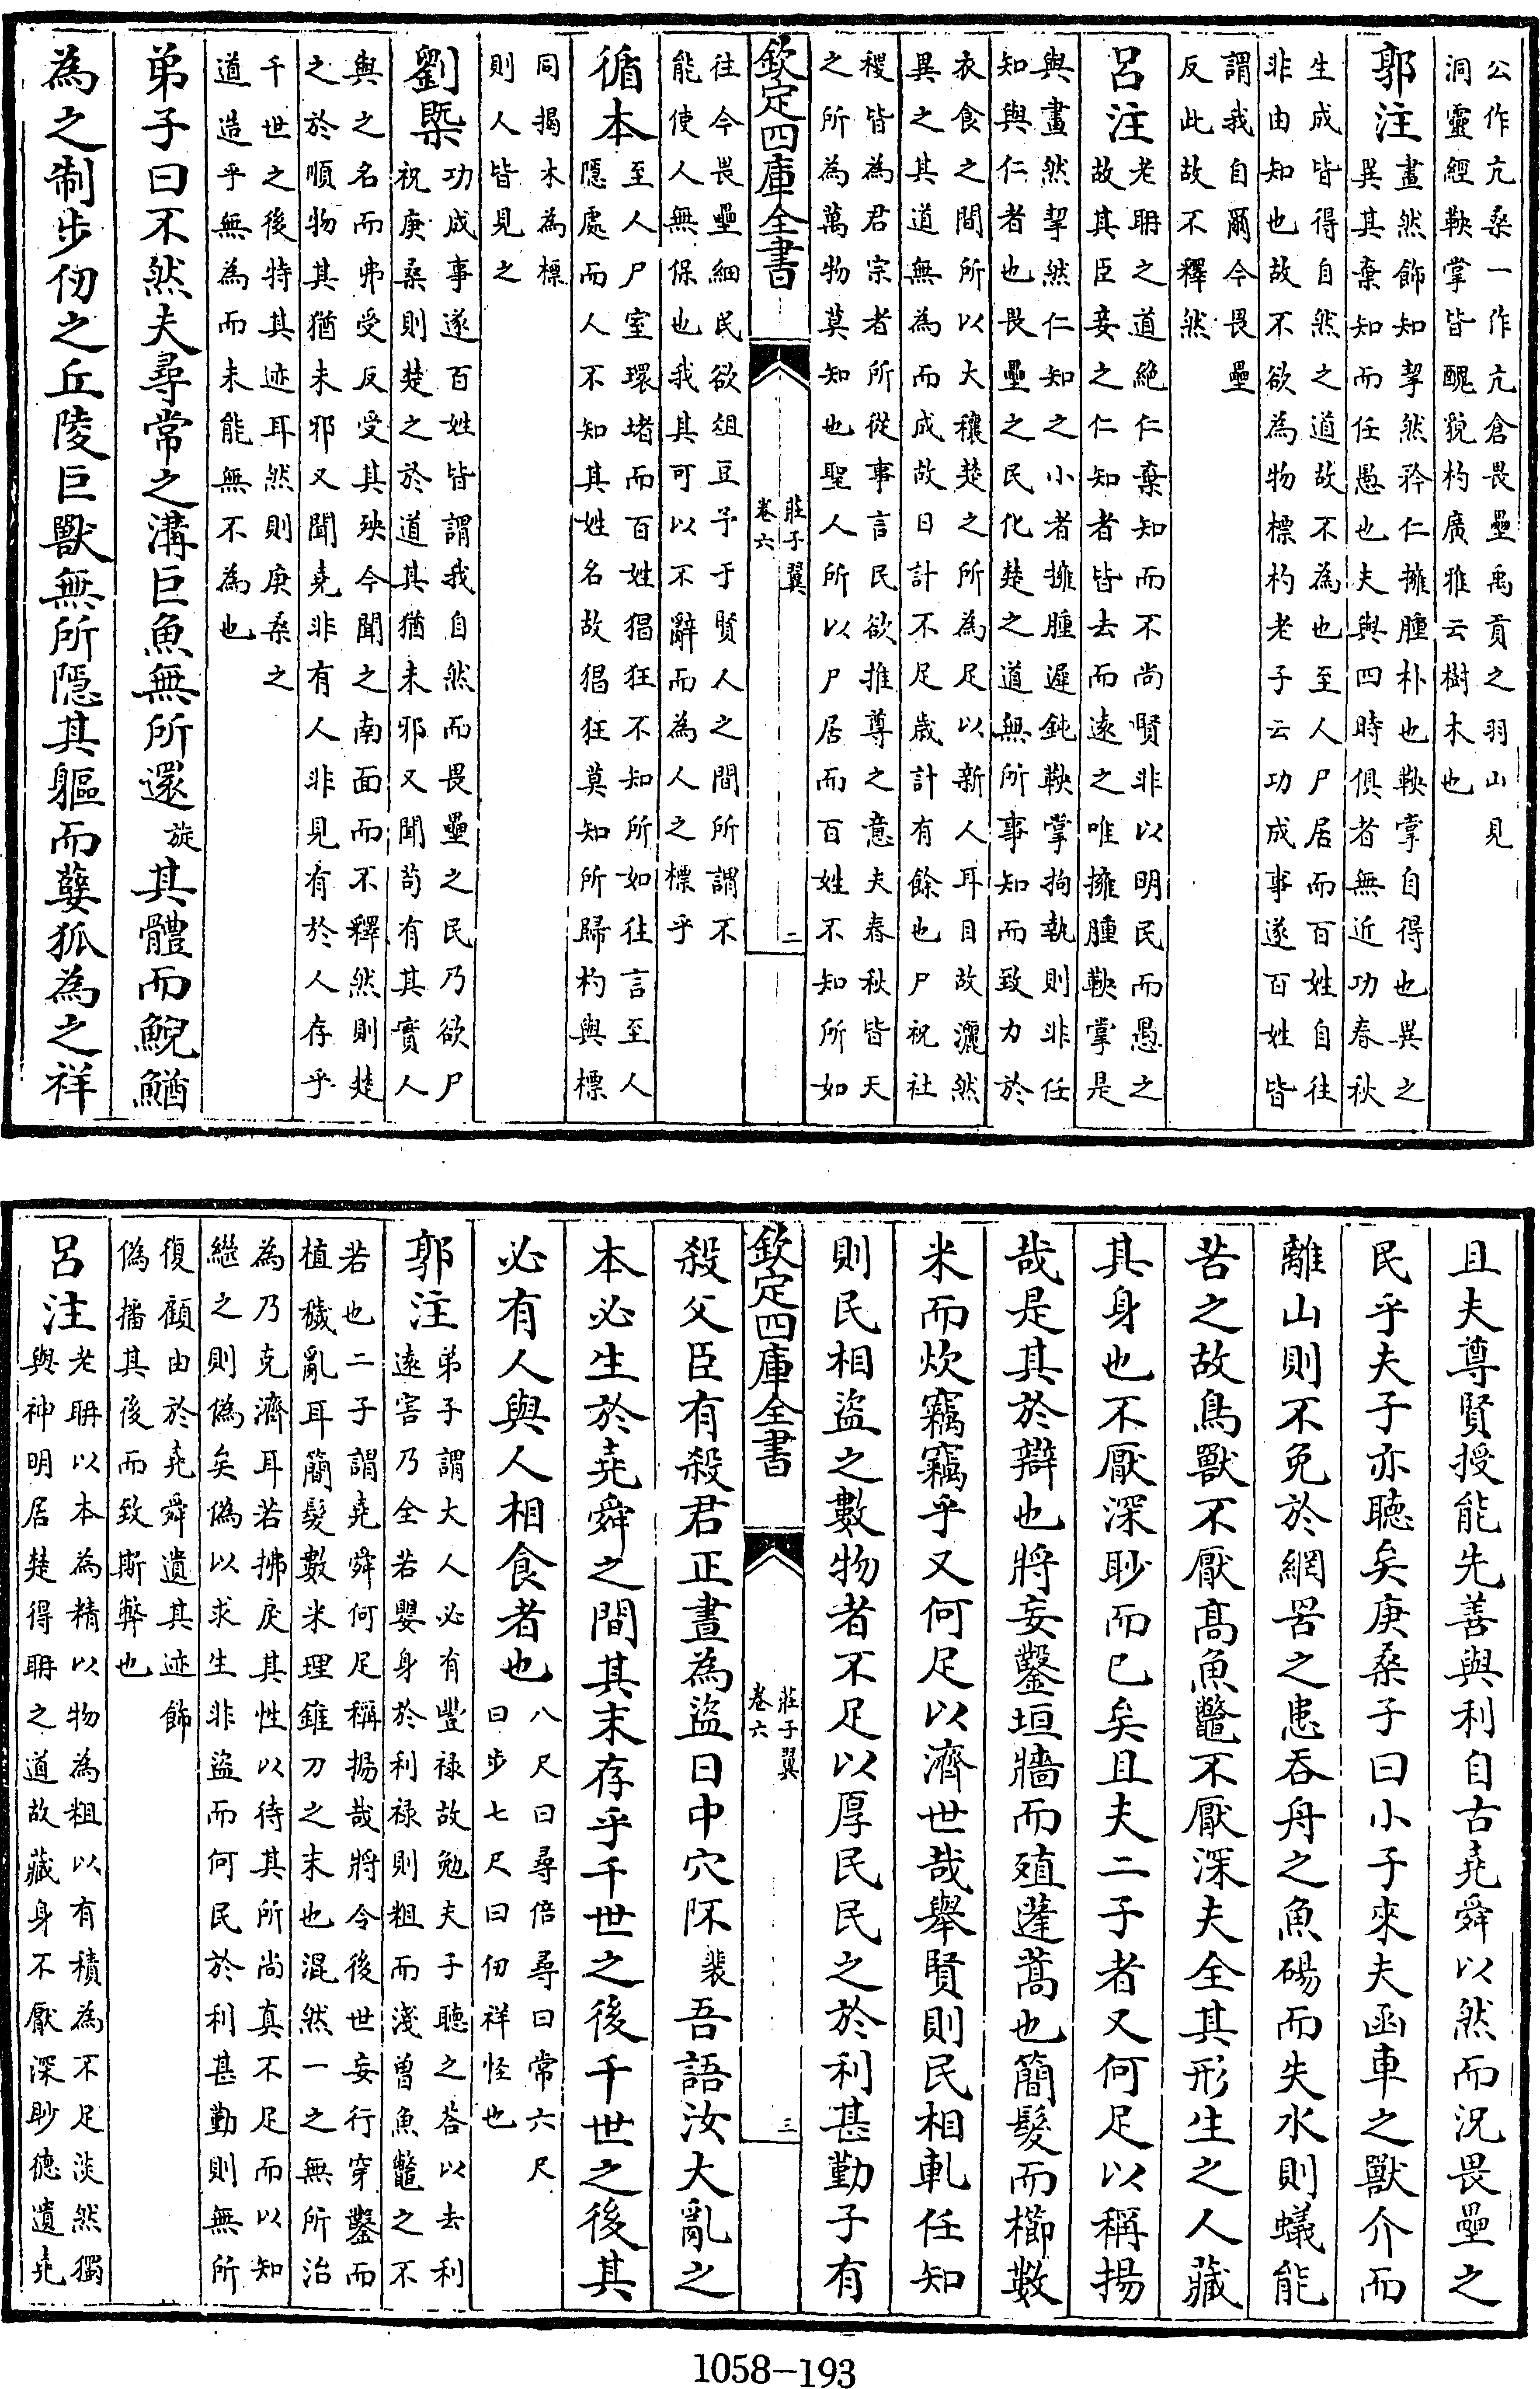 公作亢桑一作亢倉畏壘禹貢之羽山見
洞靈經鞅掌皆醜貌杓廣雅云樹木也
郭注
畫然飾知挈然矜仁擁腫朴也鞅掌自得也異之
異其棄知而任愚也夫與四時俱者無近功春秋
生成皆得自然之道故不為也至人尸居而百姓自往
非由知也故不欲為物標杓老子云功成事遂百姓皆
謂我自爾今畏壘
反此故不釋然
呂注
老聃之道絶仁棄知而不尚賢非以明民而愚之
故其臣妾之仁知者皆去而遠之唯擁腫鞅掌是
與畫然挈然仁知之小者擁腫遲鈍鞅掌拘執則非任
知與仁者也畏壘之民化楚之道無所事知而致力於
衣食之間所以大穰楚之所為足以新人耳目故灑然
異之其道無為而成故日計不足歲計有餘也尸祝社
稷皆為君宗者所從事言民欲推尊之意夫春秋皆天
之所為萬物莫知也聖人所以尸居而百姓不知所如
欽定四庫全書
莊子翼
卷六
二
往今畏壘細民欲俎豆予于賢人之間所謂不
能使人無保也我其可以不辭而為人之標乎
循本
至人尸室環堵而百姓猖狂不知所如往言至人
隱處而人不知其姓名故猖狂莫知所歸杓與標
同揭木為標
則人皆見之
劉槩
功成事遂百姓皆謂我自然而畏壘之民乃欲尸
祝庚桑則楚之於道其猶未邪又聞苟有其實人
與之名而弗受反受其殃今聞之南面而不釋然則楚
之於順物其猶未邪又聞堯非有人非見有於人存乎
千世之後特其迹耳然則庚桑之
道造乎無為而未能無不為也
弟子曰不然夫尋常之溝巨魚無所還旋其體而鯢鰌
為之制步仞之丘陵巨獸無所隱其軀而㜸狐為之祥
且夫尊賢授能先善與利自古堯舜以然而況畏壘之
民乎夫子亦聽矣庚桑子曰小子來夫函車之獸介而
離山則不免於網罟之患吞舟之魚碭而失水則蟻能
苦之故鳥獸不厭高魚鼈不厭深夫全其形生之人藏
其身也不厭深眇而已矣且夫二子者又何足以稱揚
哉是其於辯也將妄鑿垣牆而殖蓬蒿也簡髮而櫛數
米而炊竊竊乎又何足以濟世哉舉賢則民相軋任知
則民相盜之數物者不足以厚民民之於利甚勤子有
欽定四庫全書
莊子翼
卷六
三
殺父臣有殺君正晝為盜日中穴阫裴吾語汝大亂之
本必生於堯舜之間其末存乎千世之後千世之後其
必有人與人相食者也
八尺曰尋倍尋曰常六尺
曰步七尺曰仞祥怪也
郭注
弟子謂大人必有豐禄故勉夫子聽之荅以去利
遠害乃全若嬰身於利禄則粗而淺曾魚鼈之不
若也二子謂堯舜何足稱揚哉將令後世妄行穿鑿而
植穢亂耳簡髮數米理錐刀之末也混然一之無所治
為乃克濟耳若拂戾其性以待其所尚真不足而以知
繼之則偽矣偽以求生非盜而何民於利甚勤則無所
復顧由於堯舜遺其迹飾
偽播其後而致斯弊也
呂注
老聃以本為精以物為粗以有積為不足淡然獨
與神明居楚得聃之道故藏身不厭深眇德遺堯
1058-193